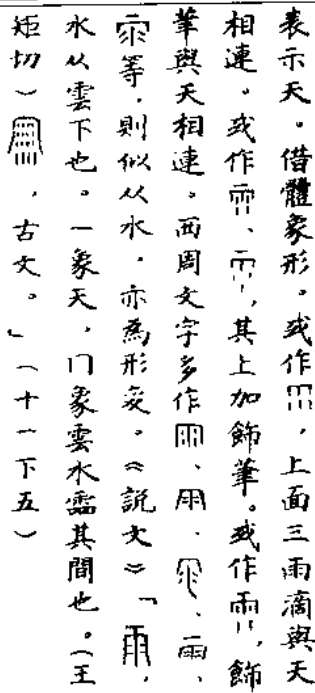 表示天。借體象形。或作，上面三雨滴與天
相連。或作、，其上加飾筆。或作，飾
筆與天相連。西周文字多作、、、、
等，則似从水，亦為形變。《說文》「雨，
水从雲下也。一象天，冂象雲水霝其間也。（王
矩切），古文。」（十一下五）